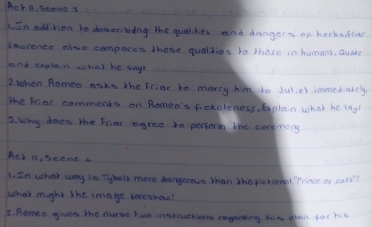 Act II, Scene 3
1. In addition to describing the qualities and dangers of herbs, Friar
Laurence also compares those qualities to those in humans. Quote
and explain what he says
2. When Romeo asks the Friar to marry him to Juliet immediately,
the Friar comments on Romeo's fickleness. Explain what he says
3. Why does the Friar agree to perform the ceremony
Act II, Scene 4
1. In what way is Tybalt more dangerous than the fictional "Prince of cats"?
What might the image foreshow?
2. Romeo gives the nurse two instructions regarding his plan for his